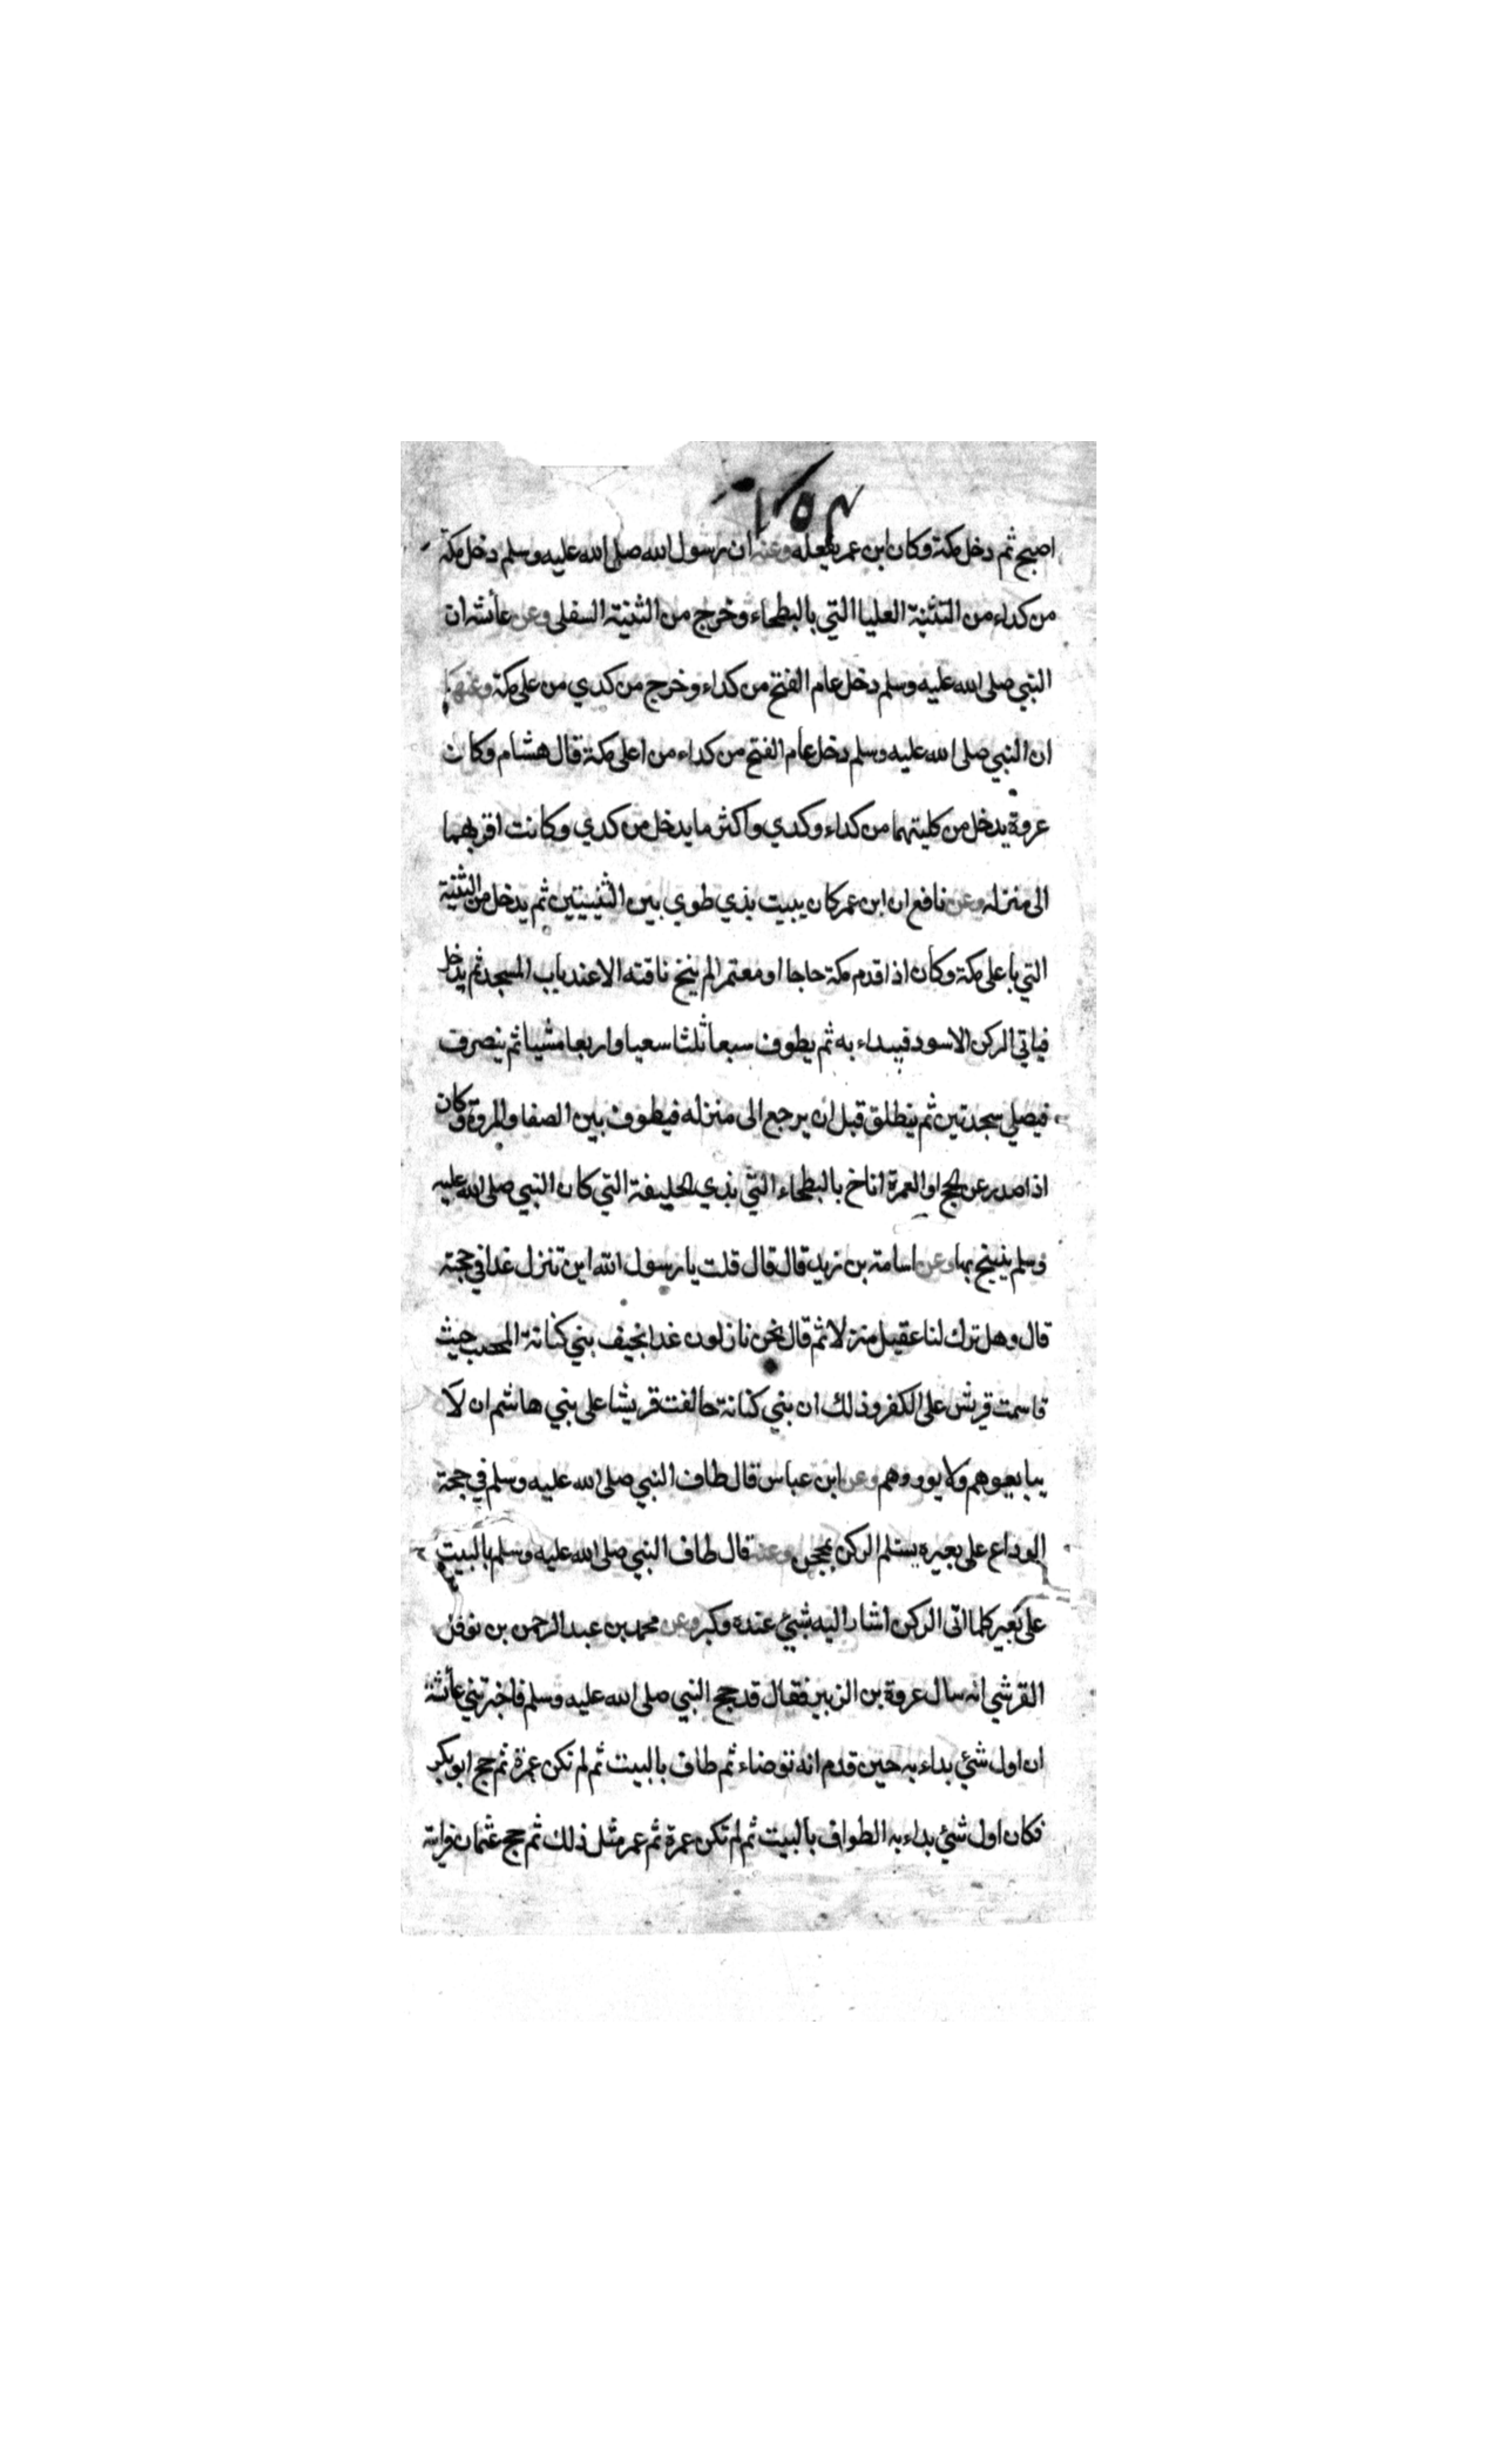 ١٥٢
اصبح ثم دخل مكة وكان ابن عمر يفعله وعنه ان رسول الله صلى الله عليه وسلم دخل مكة
من كداء من الثنية العليا التي بالبطحاء وخرج من الثنية السفلى وعن عائشة ان
النبي صلى الله عليه وسلم دخل عام الفتح من كداء وخرج من كدي من على مكة وعنها
ان النبي صلى الله عليه وسلم دخل عام الفتح من كداء من اعلى مكة قال هشام وكان
عروة يدخل من كليتهما من كداء وكدي واكثر ما يدخل من كدي وكانت اقربهما
الى منزله وعن نافع ان ابن عمر كان يبيت بذي طوي بين الثنيتين ثم يدخل من الثنية
التي باعلى مكة وكان اذا قدم مكة حاجا او معتمرا لم ينخ ناقته الا عند باب المسجد ثم يدخل
فياتي الركن الاسود فيبداء به ثم يطوف سبعا ثلثا سعيا واربعا مشيا ثم ينصرف
فيصلي سجدتين ثم ينطلق قبل ان يرجع الى منزله فيطوف بين الصفا والمروة وكان
اذا صدر عن الحج او العمرة اناخ بالبطحاء التي بذي الحليفة التي كان النبي صلى الله عليه
وسلم ينيخ بها وعن اسامة بن زيد قال قال قلت يا رسول الله اين تنزل غدا في حجته
قال وهل ترك لنا عقيل منزلا ثم قال نحن نازلون غدا بخيف بني كنانة المحصب حيث
قاسمت قريش على الكفر وذلك ان بني كنانة حالفت قريشا على بني هاشم ان لا
يبايعوهم ولا يوووهم وعن ابن عباس قال طاف النبي صلى الله عليه وسلم في حجة
الوداع على بعيره يستلم الركن بمحجن وعنه قال طاف النبي صلى الله عليه وسلم بالبيت
على بعير كلما اتى الركن اشار اليه بشيئ عنده وكبر وعن محمد بن عبد الرحمن بن نوفل
القرشي انه سال عروة بن الزبير فقال قد حج النبي صلى الله عليه وسلم فاخبرتني عائشة
ان اول شيئ بداء به حين قدم انه توضاء ثم طاف بالبيت ثم لم تكن عمرة ثم حج ابو بكر
فكان اول شيئ بداء به الطواف بالبيت ثم لم تكن عمرة ثم عمر مثل ذلك ثم حج عثمان فرايته